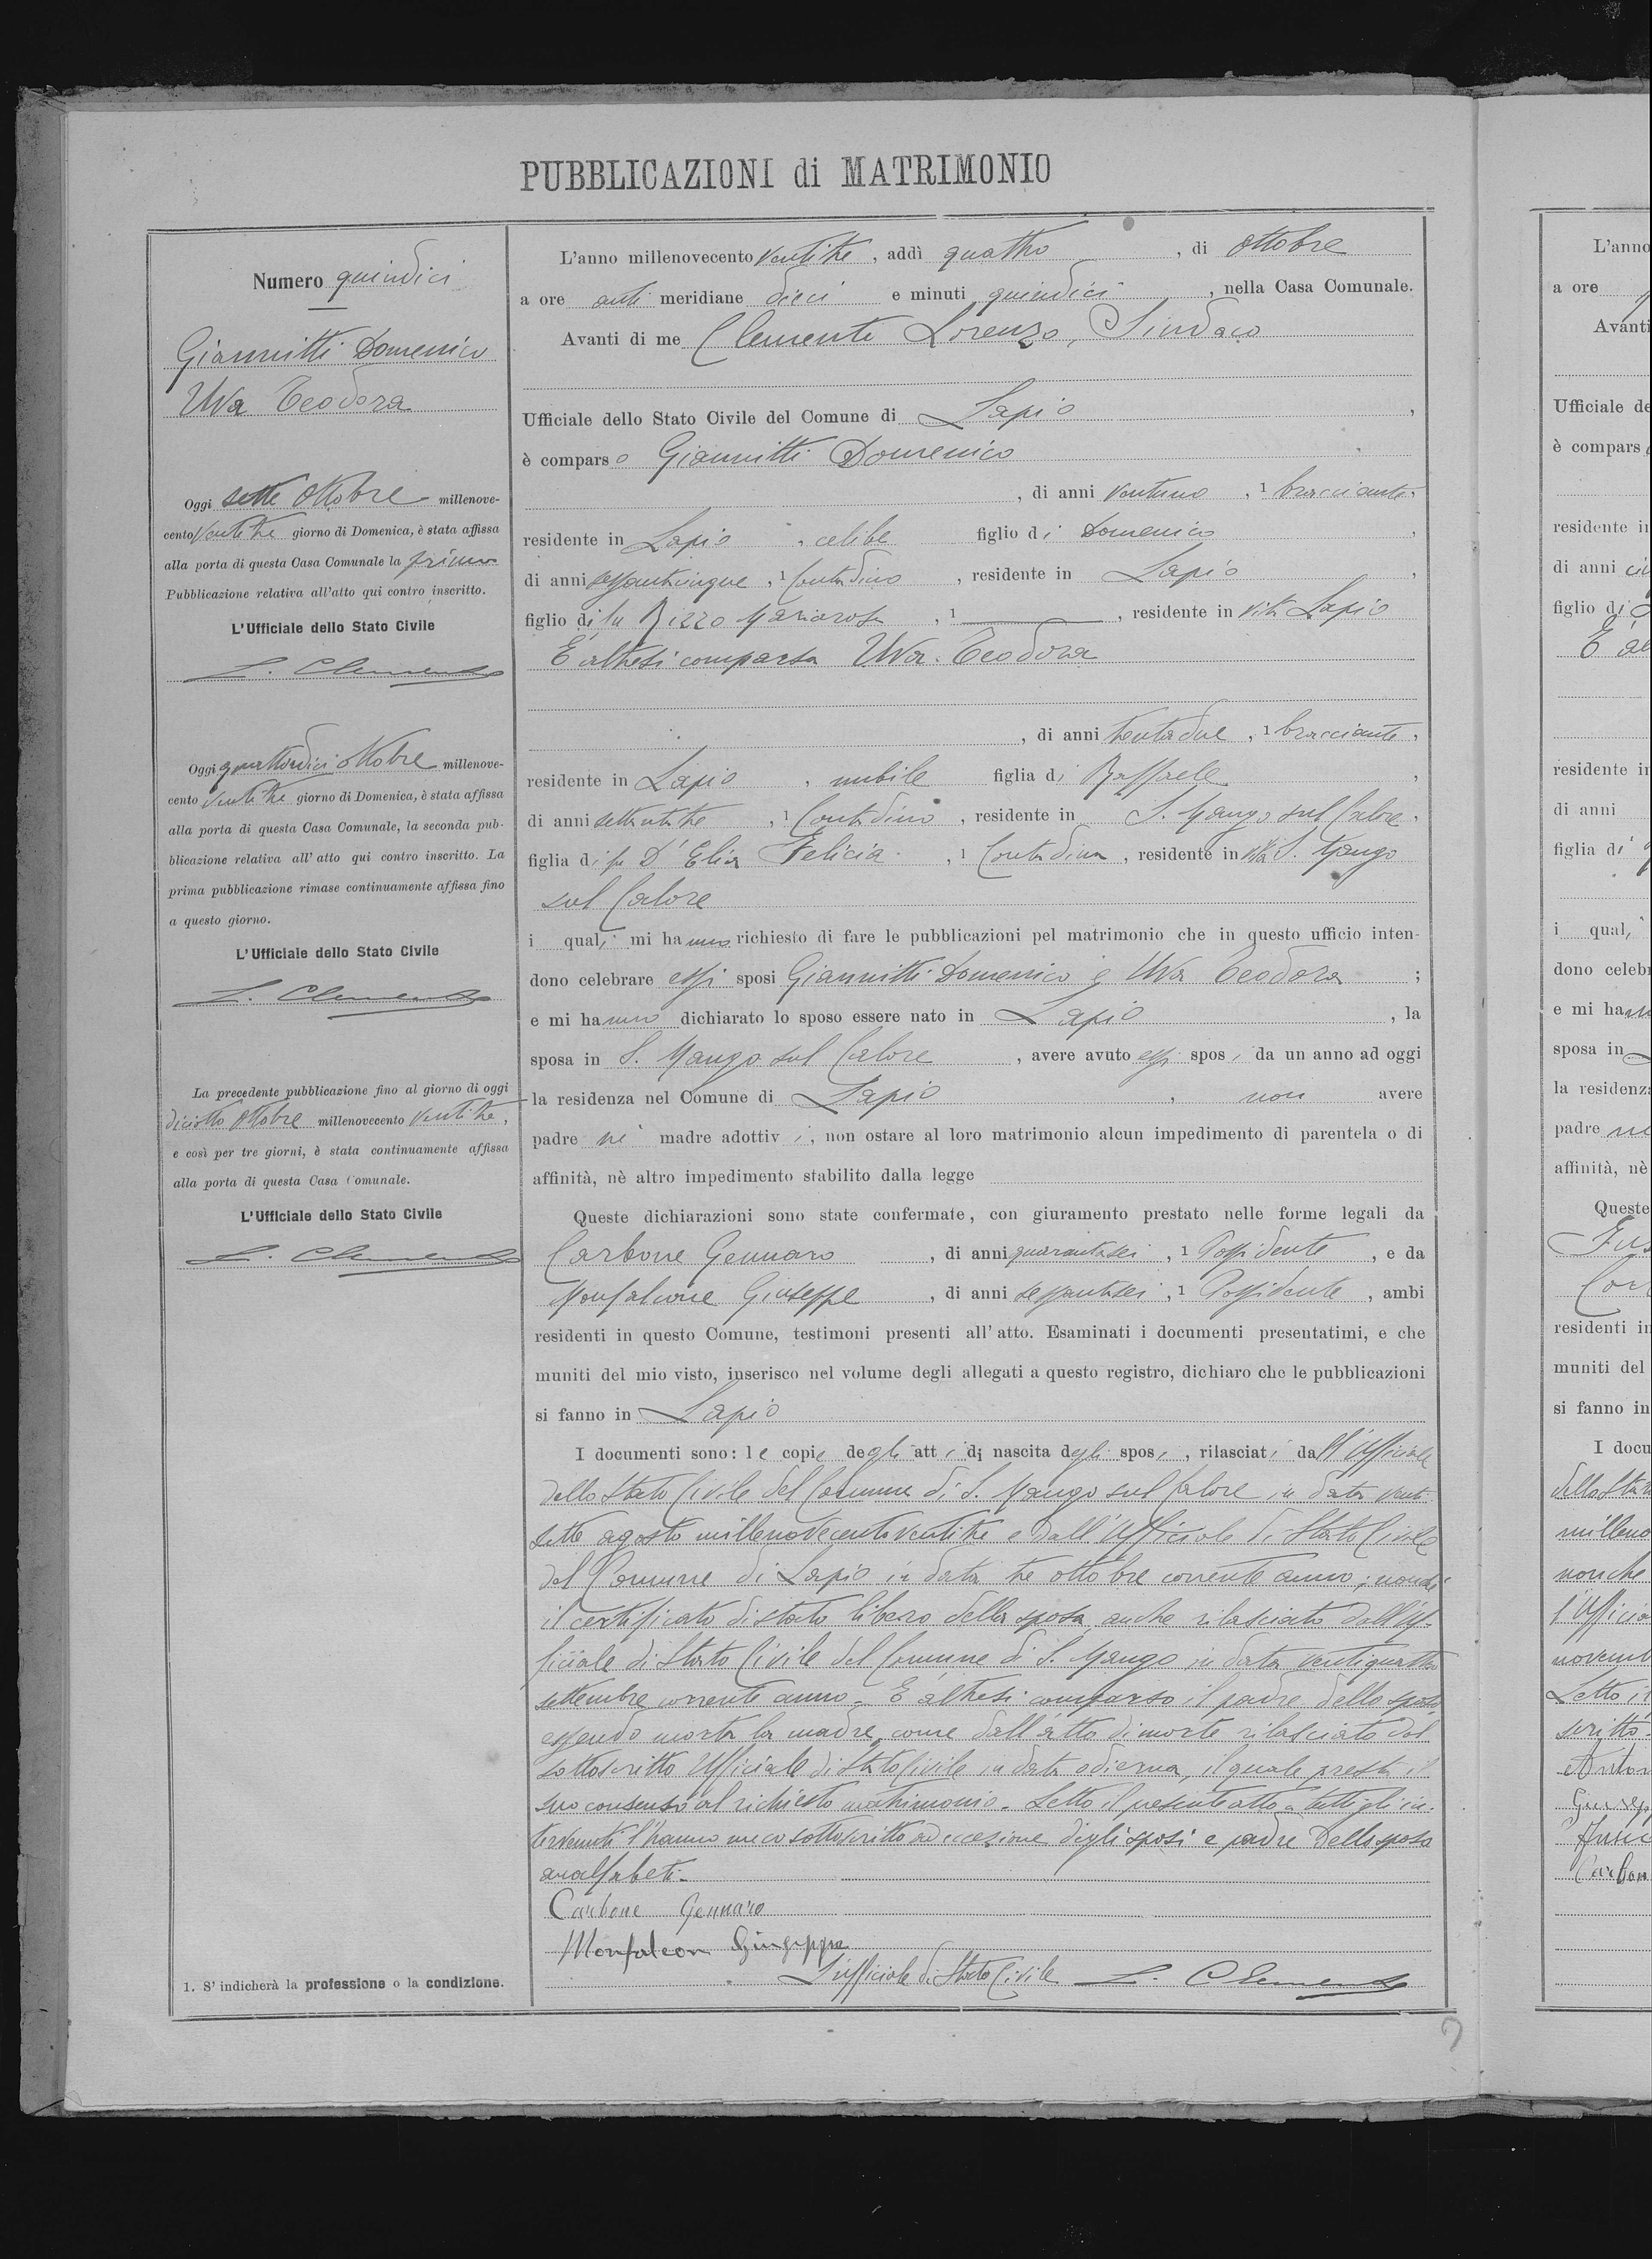 PUBBLICAZIONI di MATRIMONIO
Numero quindici
Giannitti Domenico
Uva Teodora
Oggi sette ottobre millenove-
cento ventitre giorno di Domenica, è stata affissa
alla porta di questa Casa Comunale la prima
Pubblicazione relativa all'atto qui contro inscritto.
L'Ufficiale dello Stato Civile
L. Clemente
Oggi quattordici ottobre millenove-
cento ventitre giorno di Domenica, è stata affissa
alla porta di questa Casa Comunale, la seconda pub-
blicazione relativa all'atto qui contro inscritto. La
prima pubblicazione rimase continuamente affissa fino
a questo giorno.
L'Ufficiale dello Stato Civile
L. Clemente
La precedente pubblicazione fino al giorno di oggi
diciotto ottobre millenovecento ventitre,
e così per tre giorni, è stata continuamente affissa
alla porta di questa Casa Comunale.
L'Ufficiale dello Stato Civile
L. Clemente
1. S'indicherà la professione o la condizione.
L'anno millenovecento ventitre, addì quattro, di ottobre
a ore anti meridiane dieci e minuti quindici, nella Casa Comunale.
Avanti di me Clemente Lorenzo, Sindaco
Ufficiale dello Stato Civile del Comune di Lapio,
è comparso Giannitti Domenico
, di anni ventuno, 1 bracciante,
residente in Lapio, celibe figlio di Domenico,
di anni sessantacinque, 1 Contadino, residente in Lapio,
figlio di fu Rizzo Mariarosa, 1 , residente in vita Lapio
È altresì comparsa Uva Teodora
, di anni trentadue, 1 bracciante,
residente in Lapio, nubile figlia di Raffaele,
di anni settantatre, 1 Contadino, residente in S. Mango sul Calore,
figlia di fu D'Elia Felicia, 1 Contadina, residente in vita S. Mango
sul Calore
i quali mi hanno richiesto di fare le pubblicazioni pel matrimonio che in questo ufficio inten-
dono celebrare essi sposi Giannitti Domenico e Uva Teodora;
e mi hanno dichiarato lo sposo essere nato in Lapio, la
sposa in S. Mango sul Calore, avere avuto essi sposi da un anno ad oggi
la residenza nel Comune di Lapio, non avere
padre nè madre adottivi, non ostare al loro matrimonio alcun impedimento di parentela o di
affinità, nè altro impedimento stabilito dalla legge
Queste dichiarazioni sono state confermate, con giuramento prestato nelle forme legali da
Carbone Gennaro, di anni quarantasei, 1 Possidente, e da
Monfalcone Giuseppe, di anni sessantasei, 1 Possidente, ambi
residenti in questo Comune, testimoni presenti all'atto. Esaminati i documenti presentatimi, e che
muniti del mio visto, inserisco nel volume degli allegati a questo registro, dichiaro che le pubblicazioni
si fanno in Lapio
I documenti sono: le copie degli atti di nascita degli sposi, rilasciati dall'Ufficiale
dello Stato Civile del Comune di S. Mango sul Calore in data venti-
sette agosto millenovecentoventitre e dall'Ufficiale di Stato Civile
del Comune di Lapio in data tre ottobre corrente anno; nonchè
il certificato di stato libero della sposa, anche rilasciato dall'Uf-
ficiale di Stato Civile del Comune di S. Mango in data ventiquattro
settembre corrente anno. È altresì comparso il padre dello sposo,
essendo morta la madre, come dall'atto di morte rilasciato dal
sottoscritto Ufficiale di Stato Civile in data odierna, il quale presta il
suo consenso al richiesto matrimonio. Letto il presente atto a tutti gli in-
tervenuti l'hanno meco sottoscritto ad eccezione degli sposi e padre dello sposo
analfabeti.
Carbone Gennaro
Monfalcon Giuseppe
L'ufficiale di Stato Civile L. Clemente
L'anno
a ore
Avanti
Ufficiale de
è compars
residente in
di anni
figlio di
È al
residente in
di anni
figlia di
i quali
dono celebr
e mi hann
sposa in
la residenza
padre nè
affinità, nè
Queste
residenti in
muniti del
si fanno in
I docu
dello Stat
milleno
nonche
l'Ufficia
novemb
Letto il
scritto
Giusepp
Carbon